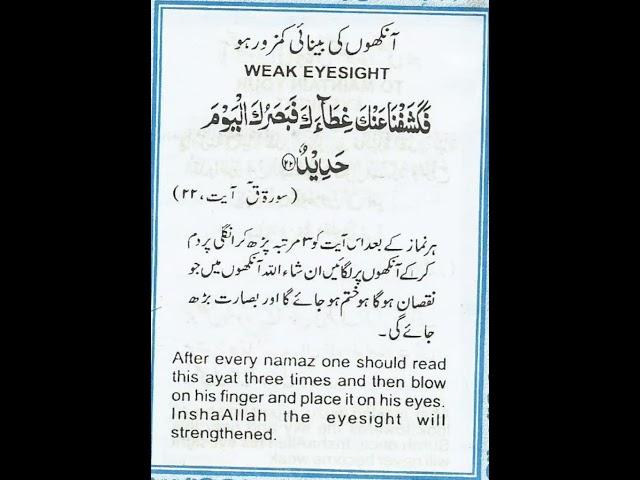 آنکھوں کی بینائی کمزور ہو
WEAK EYESIGHT
فَكَشَفْنَا عَنْكَ غِطَآءَكَ فَبَصَرُكَ الْيَوْمَ
حَدِيْدٌ ﴿۲۲﴾
(سورۃ قٓ آیت، ۲۲)
ہر نماز کے بعد اس آیت کو ۳ مرتبہ پڑھ کر انگلی پر دم
کر کے آنکھوں پر لگائیں ان شاء اللہ آنکھوں میں جو
نقصان ہوگا ہو ختم ہو جائے گا اور بصارت بڑھ
جائے گی۔
After every namaz one should read
this ayat three times and then blow
on his finger and place it on his eyes.
InshaAllah the eyesight will
strengthened.